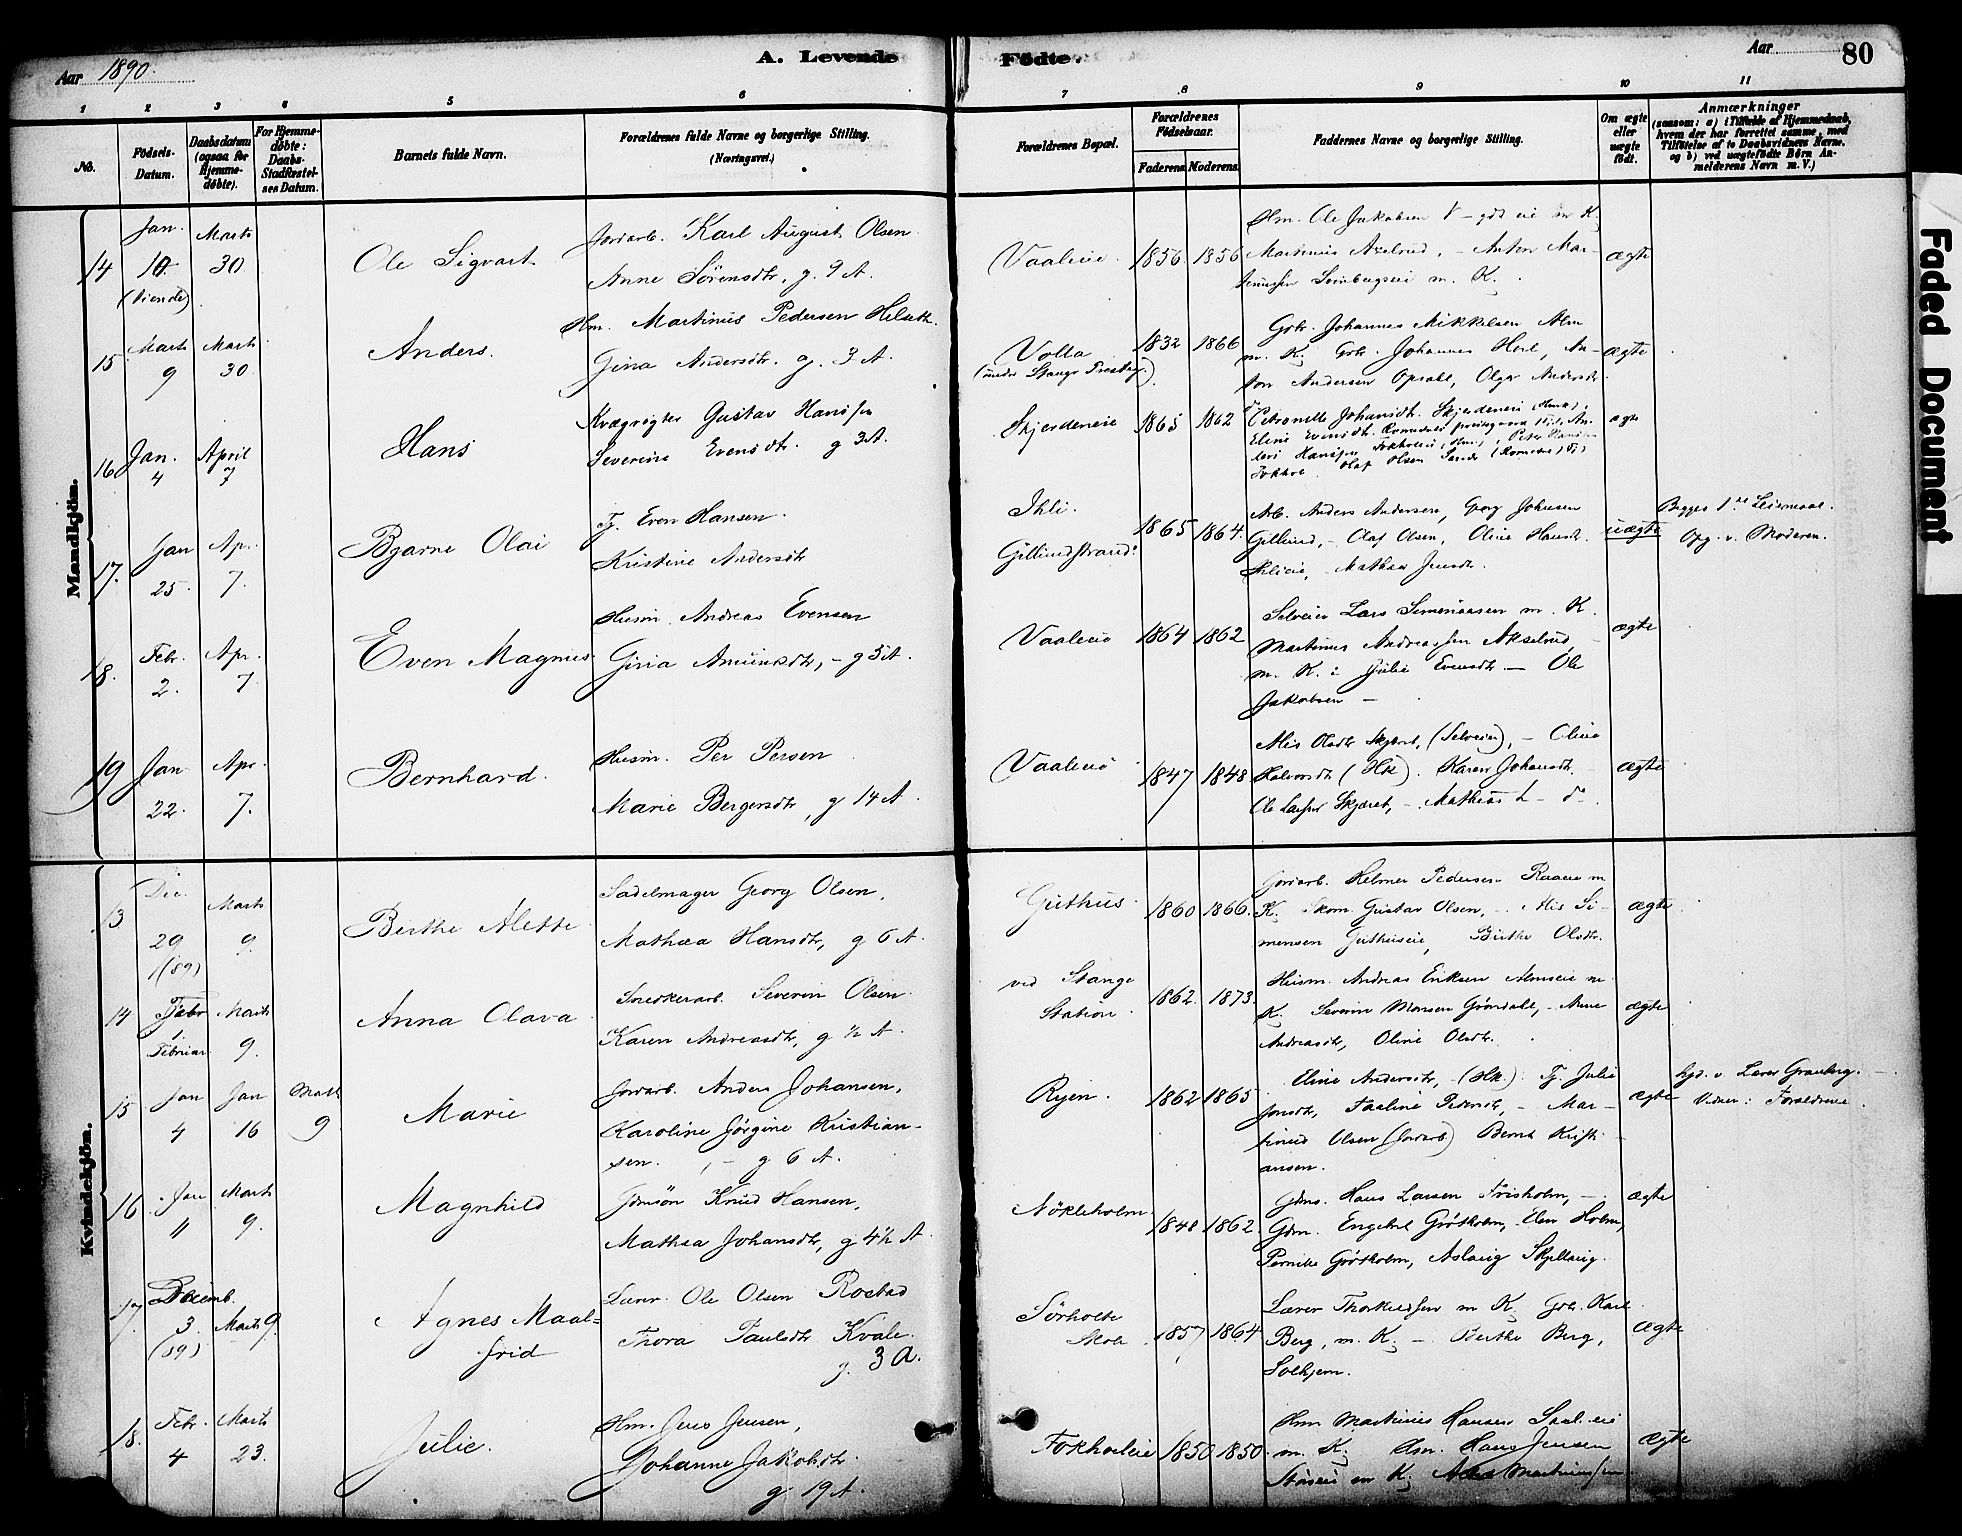 Aar 1890.
A. Levende
Födte.
Aar
80
1 2 3 6 5 6 7 8 9 10 11
No.
Födsels-Datum.
Daabsdatum (ogsaa for Hjemmedöbte).
For Hjemmedöbte: Daabs-Stadfæstelses Datum.
Barnets fulde Navn.
Forældrenes fulde Navne og borgerlige Stilling.
(Næringsvei.)
Forældrenes Bopæl.
Forældrenes Födselsaar.
Faderens. Moderens.
Faddernes Navne og borgerlige Stilling.
Om ægte eller uægte födt.
Anmærkninger
(saasom: a) i Tilfælde af Hjemmedaab,
hvem der har forrettet samme, med
Tilföielse af to Daabsvidners Navne.
og b) ved uægtefödte Börn An-
melderens Navn m. V.)
Faded Document
Mandkjön.
14 Jan. 10 Marts 30
Ole Sigvart
Jordarb. Karl August Olsen
Anne Sörensdtr, g. 9 A.
Vaaleie 1856 1856
Hm. Ole Jakobsen
Martinus Axelrud, - Anton Mar-
m. K.
ægte
15 Marts 9 Marts 30.
Anders.
Hm. Martinus Pedersen Helseth
Gina Andersdtr. g. 3 A.
Volla
(under Stange Præstegj.)
1832 1866
Grbr. Johannes Mikkelsen Alm
m. K. Grbr. Johannes Horl, An-
ton Andersen Opsahl, Olga Andersdtr.
ægte
16 Jan. 4 April 7
Hans
Kvægrögter Gustav Hansen
Severine Evensdtr. g 3 A.
Skjerdeneie 1865 1862
Petronelle Johansdt. Skjerdeneie
Eline Evensdt.
Olaf Olsen
ægte
17. Jan 25. Apr. 7.
Bjarne Olai
Tj. Even Hansen.
Kristine Andersdtr
Ihli.
Gillundstrand.
1865 1864.
Arb. Anders Andersen, Georg Johnsen
Gillund, - Olaf Olsen, Oline Hansdt.
Ihlieie, - Mathea Jensdt.
uægte
Begges 1ste Leiermaal.
Opg. v. Moderen.
18. Febr. 2. Apr. 7
Even Magnus
Husm. Andreas Evensen
Gina Amundsdtr, - g 5 A.
Vaaleie 1864 1862
Selveier Lars Simensen m. K.
Martinus Andreassen Akselrud,
m. K. : Julie Evensdt. - Ole
Jakobsen -
ægte
19 Jan. 22. Apr. 7.
Bernhard.
Husm. Per Persen
Marie Bergersdtr, g 14 A.
Vaaleie 1847 1848
Olsdtr Skjæret, (Selveier), - Oline
Halvorsdt (Hk). Karen Johansdt.
Ole Larsen Skjæret, - Mathias L - do
ægte
Kvindekjön.
13 Dec. 29 (89) Marts 9.
Birthe Alette
Sadelmager Georg Olsen,
Mathea Hansdtr, g 6 A.
Guthus. 1860 1866.
Jordarb. Helmer Pedersen Raaeie m
K. Skom. Gustav Olsen, - Mis Si-
mensen Guthuseie, Birthe Olsdtr.
ægte
14 Februar 1 Marts 9.
Anna Olava
Snedkerarb. Severin Olsen.
Karen Andreasdt, g ½ A.
ved Stange
Station.
1862. 1873.
Husm. Andreas Eriksen Almseie m
K. Severin Monsen Gröndahl, - Anne
Andreasdt, Oline Olsdtr.
ægte
15 Jan 4 Jan 16 Marts 9
Marie
Jordarb. Anders Johansen,
Karoline Jörgine Kristian-
sen. - g 6 A.
Ryen. 1862 1865
Eline Andersdtr, - (Hk.). Tj. Julie
Jonsdt, Paaline Pedersdtr, - Mar-
tinus Olsen (Jordarb) Bernt Kristi-
ansen.
ægte
hjd. v. Lærer Granberg. -
Vidner: Forældrene.
16 Jan 11 Marts 9.
Magnhild
Gdmsön Knud Hansen,
Mathea Johansdtr, g 4½ A.
Nökleholm. 1848 1862.
Gdms. Hans Larsen Frisholm, -
Gdm. Engebret Grötholm, - Elen Holm,
Pernille Grötholm, Aslaug Skjellaug.
ægte
17 Decemb. 3. (89) Marts 9.
Agnes Maal-
frid
Lærer. Ole Olsen Rostad
Thora Paulsdtr Kvale.
g. 3 A.
Sörholte
Skole.
1857 1864
Lærer Thorkildsen m K. Grbr. Karl
Berg, m. K. - Berthe Berg,
Solhjem.
ægte
18. Febr. 4 Marts 23.
Julie.
Hm. Jens Jensen,
Johanne Jakobsdtr.
g. 19 A.
Fokholeie 1850 1850.
Hm Martinus Hansen
m. K. Hm. Hans Jensen
m K.
ægte